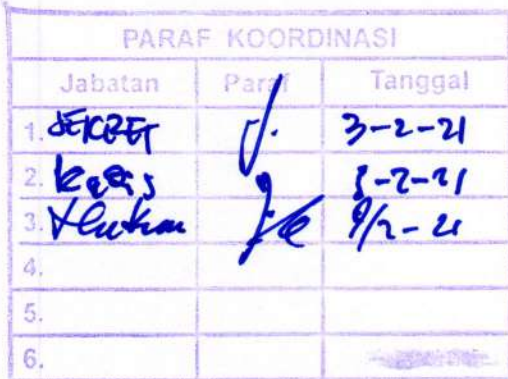 PARAF KOORDINASI
Jabatan Paraf Tanggal
1. SEKRET 3-2-21
2. 3-2-21
3. 9/2-21
4.
5.
6.